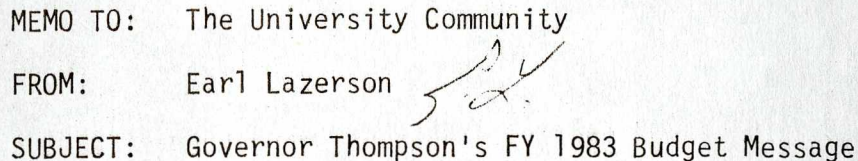 MEMO TO: The University Community
FROM: Earl Lazerson
SUBJECT: Governor Thompson's FY 1983 Budget Message